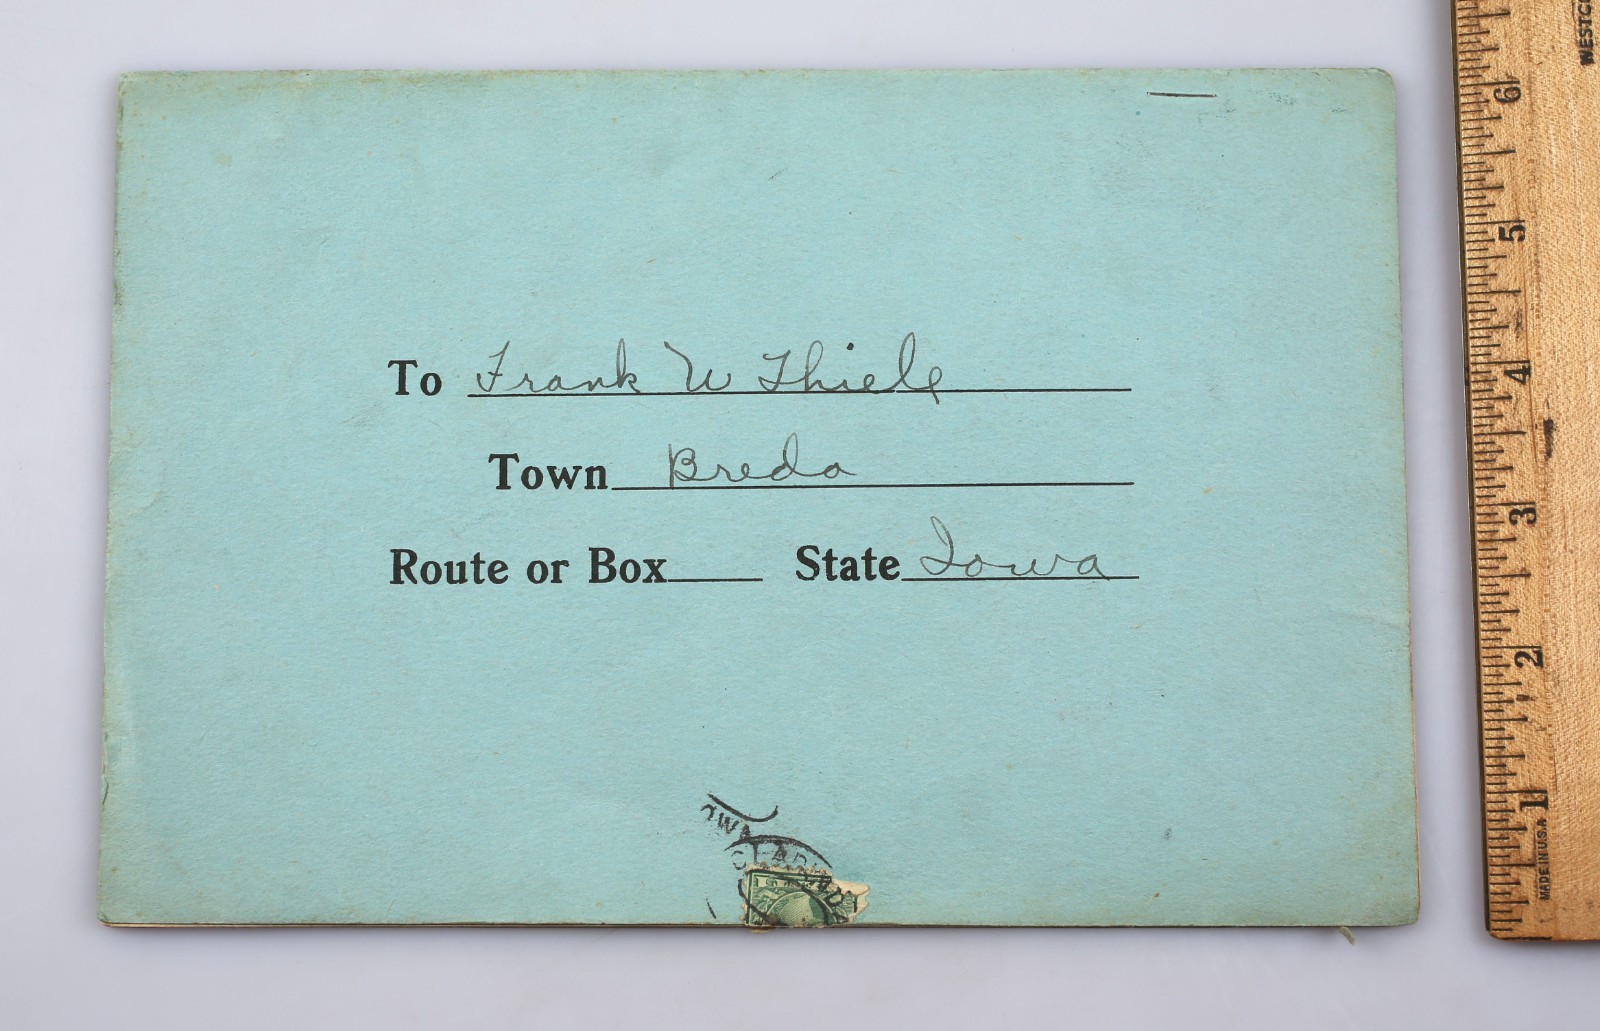 To Frank W Thiele
Town Breda
Route or Box State Iowa
IOWA
CLARINDA
6
5
4
3
2
1
MADE IN U.S.A